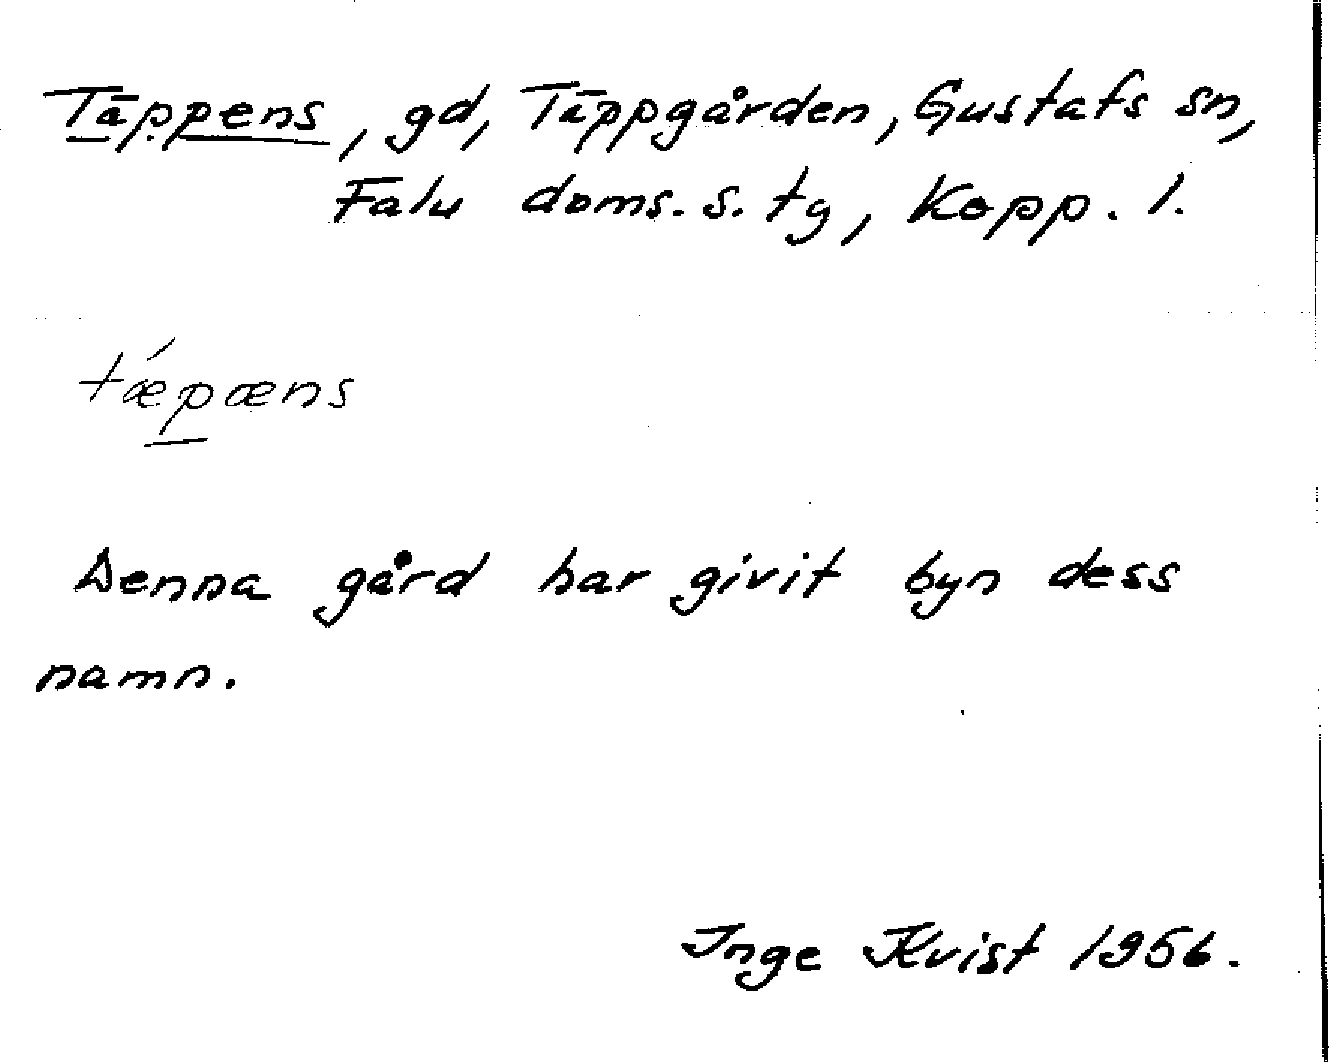 Täppens, gd, Täppgården, Gustafs sn,
Falu doms.s. tg, Kopp. l.
tǽpæns
Denna gård har givit byn dess
namn.
Inge Kvist 1956.